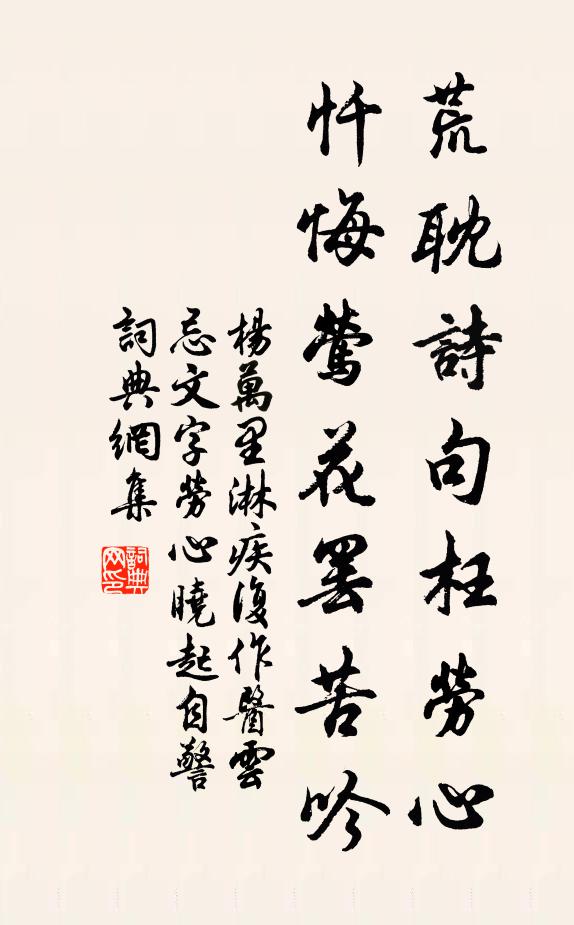 荒耽詩句枉勞心
忏悔鶯花罢苦吟
楊萬里淋疾復作醫雲
忌文字勞心曉起自警
詞典網集
詞典
网印